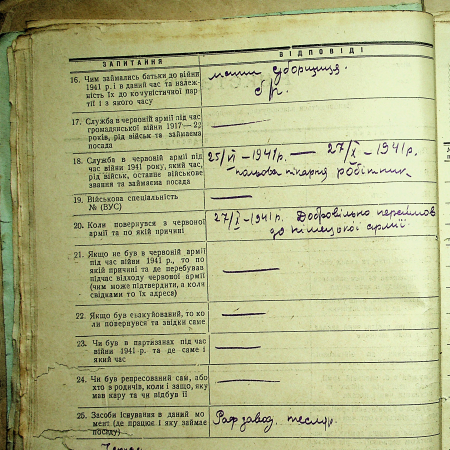 ЗАПИТАННЯ
ВІДПОВІДІ
16. Чим займались батьки до війни
1941 р. і в даний час та належ-
ність їх до комуністичної пар-
тії і з якого часу
мати уборщиця.
б/р.
17. Служба в червоній армії під час
громадянської війни 1917—22
років, рід військ та займаєма
посада
18. Служба в червоній армії під
час війни 1941 року, який час,
рід військ, останнє військове
звання та займаєма посада
25/VI – 1941 р. — 27/X – 1941 р.
польова пікарня робітник
19. Військова спеціальність
№ (ВУС)
20. Коли повернувся в червоної
армії та по якій причині
27/X – 1941 р. Добровільно перейшов
до німецької армії.
21. Якщо не був в червоній армії
під час війни 1941 р., то по
якій причині та де перебував
підчас відходу червоної армії
(чим може підтвердити, а коли
свідками то їх адреса)
22. Якщо був евакуйований, то ко
ли повернувся та звідки саме
23. Чи був в партизанах під час
війни 1941 р. та де саме і
який час
24. Чи був репресований сам, або
хто в родичів, коли і защо, яку
мав кару та чи відбув її
25. Засоби існування в даний мо
мент (де працює і яку займає
посаду)
завод. тесляр.